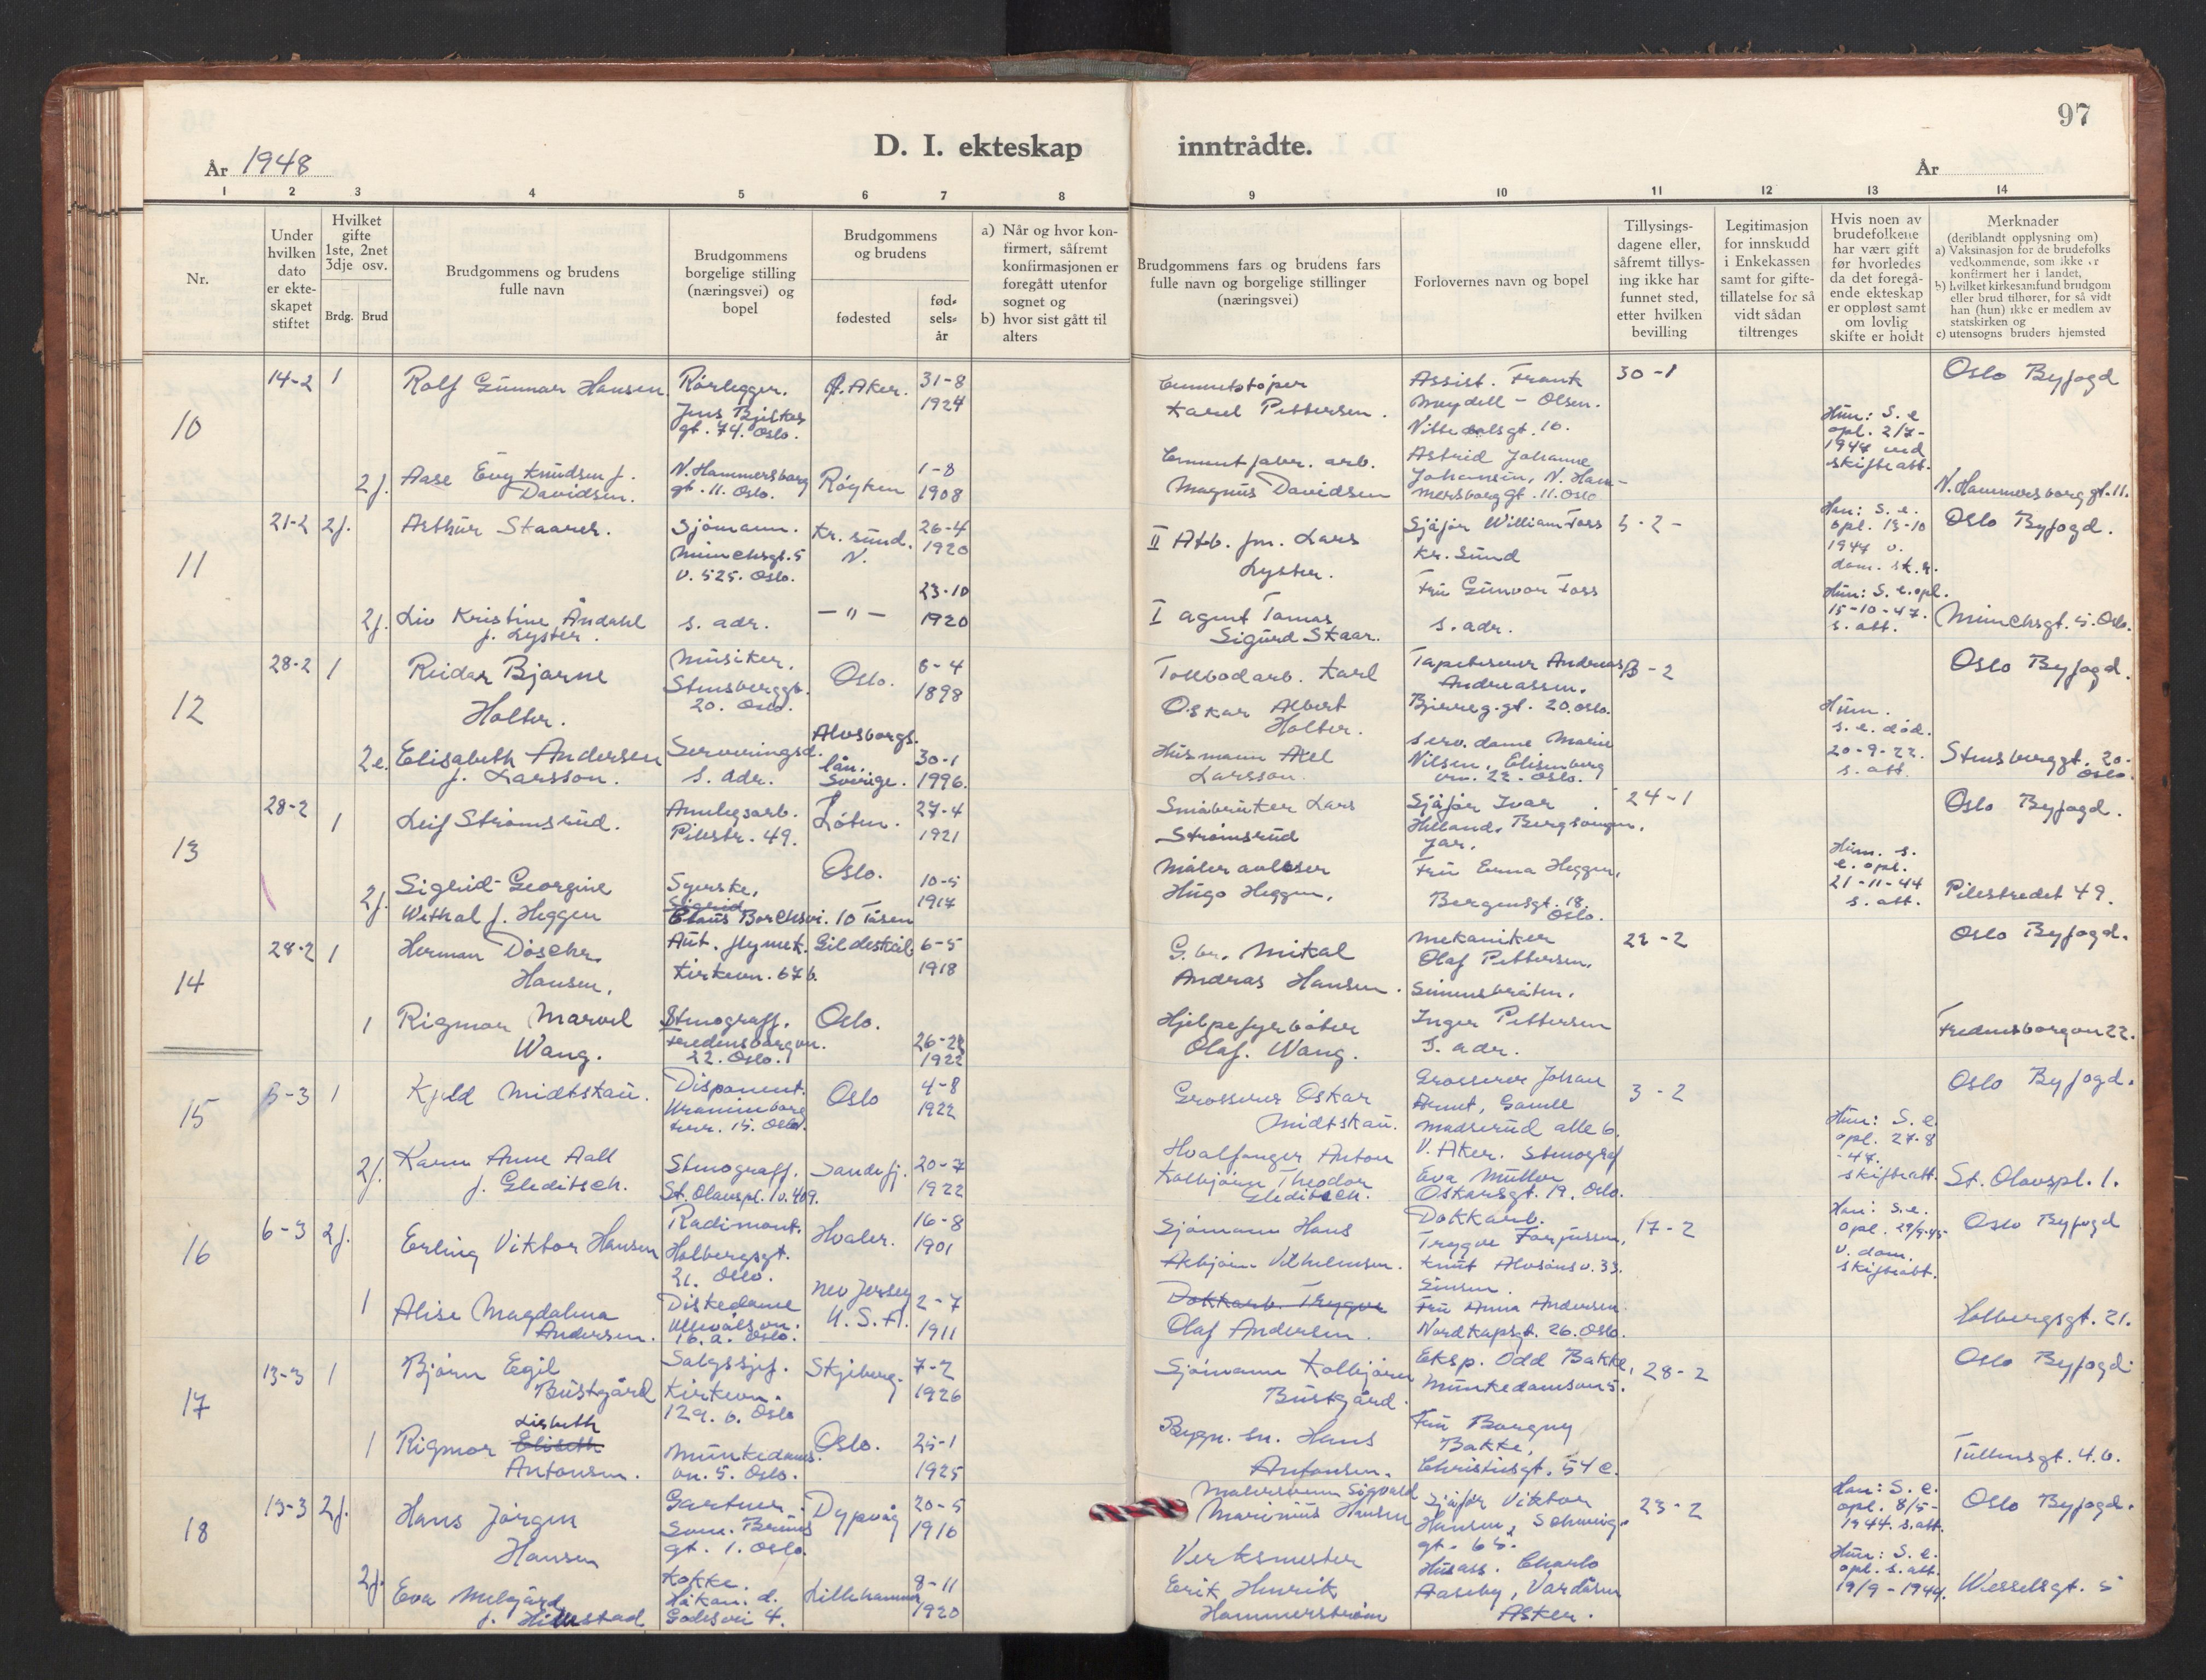 97
D. I. ekteskap inntrådte.
År 1948
År
1 2 3 4 5 6 7 8 9 10 11 12 13 14
Nr.
Under hvilken dato er ekte-skapet stiftet
Hvilket gifte 1ste, 2net 3dje osv.
Brdg. Brud
Brudgommens og brudens fulle navn
Brudgommens borgelige stilling (næringsvei) og bopel
Brudgommens og brudens
fødested
fød-sels-år
a) Når og hvor kon-firmert, såfremt konfirmasjonen er foregått utenfor sognet og
b) hvor sist gått til alters
Brudgommens fars og brudens fars fulle navn og borgelige stillinger (næringsvei)
Forlovernes navn og bopel
Tillysings-dagene eller, såfremt tillys-ing ikke har funnet sted, etter hvilken bevilling
Legitimasjon for innskudd i Enkekassen samt for gifte-tillatelse for så vidt sådan tiltrenges
Hvis noen av brudefolkene har vært gift før hvorledes da det foregå-ende ekteskap er oppløst samt om lovlig skifte er holdt
Merknader
(deriblandt opplysning om)
a) Vaksinasjon for de brudefolks vedkommende, som ikke er konfirmert her i landet,
b) hvilket kirkesamfund brudgom eller brud tilhører, for så vidt han (hun) ikke er medlem av statskirken og
c) utensogns bruders hjemsted
10
14-2 1
Rolf Gunnar Hansen
Rørlegger.
gt. 74. Oslo.
Aker.
31-8
1924
Karel Pettersen.
Assist. Frank
Meydell-Olsen.
30-1
Oslo Byfogd
2f.
Aase Evy Knudsen f.
Davidsen.
N. Hammersborg
gt. 11. Oslo.
Røyken
1-8
1908
Magnus Davidsen
Astrid Johanne
Johansen, N. Ham-
mersborg gt. 11. Oslo
Hun: S. e
opl. 2/7-
1947 ved
skifteatt.
N. Hammersborg gt. 11.
11
21-2 2f.
Arthur Skaarer.
Sjømann.
Munchsgt. 5
v. 525. Oslo.
Kr. sund.
N.
26-4
1920
II Arb. fm. Lars
Lyster.
Sjåfør William Foss
Kr. Sund
5-2-
Han: S. e.
opl. 13-10
1947 v.
dom.
Oslo Byfogd.
2f.
Liv Kristine Åndahl
f. Lyster.
s. adr.
— " —
23-10
1920
I agent Tomas
Sigurd Skaar.
Fru Gunvor Foss
s. adr.
Hun: S. e. opl.
15-10-47.
s. att.
Munchsgt. 5. Oslo.
12
28-2 1
Reidar Bjarne
Holter.
Musiker.
Stensberggt.
20. Oslo.
Oslo.
6-4
1898
Tollbodarb. Karl
Oskar Albert
Holter.
Tapetserer Andreas
Andreassen.
Bjerreg.gt. 20. Oslo.
-2
Oslo Byfogd.
2e.
Elisabeth Andersen
f. Larsson.
Serveringsd.
s. adr.
Alvsborgs.
län.
Sverige.
30-1
1996.
Husmann Axel
Larsson.
serv. dame Marie
Nilsen, Elisenberg
vn. 22. Oslo.
Hun.
s. e. død.
20-9-22.
s. att.
Stensberggt. 20.
Oslo
13
28-2 1
Leif Strømsrud.
Anlegsarb.
Pilestr. 49.
Løten.
27-4
1921
Småbruker Lars
Strømsrud
Sjåfør Ivar
Helland, Bergsvengen,
Jar.
24-1
Oslo Byfogd.
2f.
Sigrid Georgine
Withal f. Heggen
Syerske,
Sigrid
Claus Borchsvi. 10 Tåsen
Oslo.
10-5
1917
Maler avløser
Hugo Heggen.
Fru Erna Heggen,
Bergensgt. 18.
Oslo.
Hun. s.
e. opl.
21-11-44
s. att.
Pilestredet 49.
14
28-2 1
Herman Døscher
Hansen.
Aut. flymek.
Kirkevn. 67 b.
Gildeskål
6-5
1918
G.br. Mikal
Andras Hansen.
Mekaniker
Olaf Pettersen.
Simensbråten.
22-2
Oslo Byfogd.
1
Rigmor Marvel
Wang.
Stenograff.
Fredensborgvn.
22. Oslo.
Oslo.
1922
Hjelpefyrbøter
Olaf. Wang.
Inger Pettersen
S. adr.
Fredensborgvn 22.
15
-3 1
Kjeld Midtskau.
Disponent.
terr. 15. Oslo.
Oslo
4-8
1922
Grosserer Oskar
Midtskau.
Grosserer Johan
Arnt, Gamle
Madserud alle 6.
V. Aker.
3-2
Oslo Byfogd.
2f.
Karen Anne Aall
f. Gleditsch.
Stenograff.
St. Olavspl. 1 v. 409.
Sandefj.
20-7
1922
Hvalfanger Anton
Kolbjørn Theodor
Gleditsch.
Stenograf
Eva Müller
Oskarsgt. 19. Oslo.
Hun: S. e.
opl. 27-8
-47.
skifteatt.
St. Olavspl. 1.
16
6-3 2f.
Erling Viktor Hansen
Radimont.
Holbergsgt.
21. Oslo.
Hvaler.
16-8
1901
Sjømann Hans
Arbjørn Vilhelmsen.
Dokkarb.
Trygve Torjussen.
Knut Alvsons v. 33.
Sinsen.
17-2
Han: S.e.
opl. 29/9-45
v. dom.
skifteatt.
Oslo Byfogd
1
Alise Magdalena
Andersen.
Diskedame
Ullevålsvn.
16. a. Oslo.
New Jersey
U. S. A.
2-7
1911
Dokkarb. Trygve
Olaf Andersen.
Fru Anna Andersen.
Nordkapsgt. 26. Oslo.
Holbergsgt. 21.
17
13-3 1
Bjørn Egil
Bustgård
Salgssjef.
Kirkevn.
129. b. Oslo
Skjeberg.
7-2
1926
Sjømann Kolbjørn
Bustgård.
Eksp. Odd Bakke,
Munkedamsvn 5.
28-2
Oslo Byfogd.
1
Lisbeth
Rigmor Eliseth
Antonsen.
Munkedams.
vn. 5. Oslo.
Oslo.
25-1
1925
Bygn. sn. Hans
Antonsen.
Fru Borgny
Bakke,
Christiesgt. 54 c.
Tullinsgt. 4. b.
18
13-3 2f.
Hans Jørgen
Hansen
Gartner.
Som. Bruns
gt. 1. Oslo.
Dypvåg
20-5
1916
Malersvenn Sigvald
Marinius Hansen
Sjåfør Viktor
Hansen, Schweig.
gt. 65.
23-2
Han: S. e.
opl. 8/5-
1944. s. att.
Oslo Byfogd.
2f.
Eva Melgård
f. Hillestad
Kokke.
Håkon. d.
Godesvei 4.
Lillehammer
8-11
1920
Verksmester
Erik Henrik
Hammerstrøm
Husass. Charlo
Aaseby, Vardåsen
Asker.
Hun: S. e.
opl. s. att.
19/9-1944.
Wesselsgt. 5